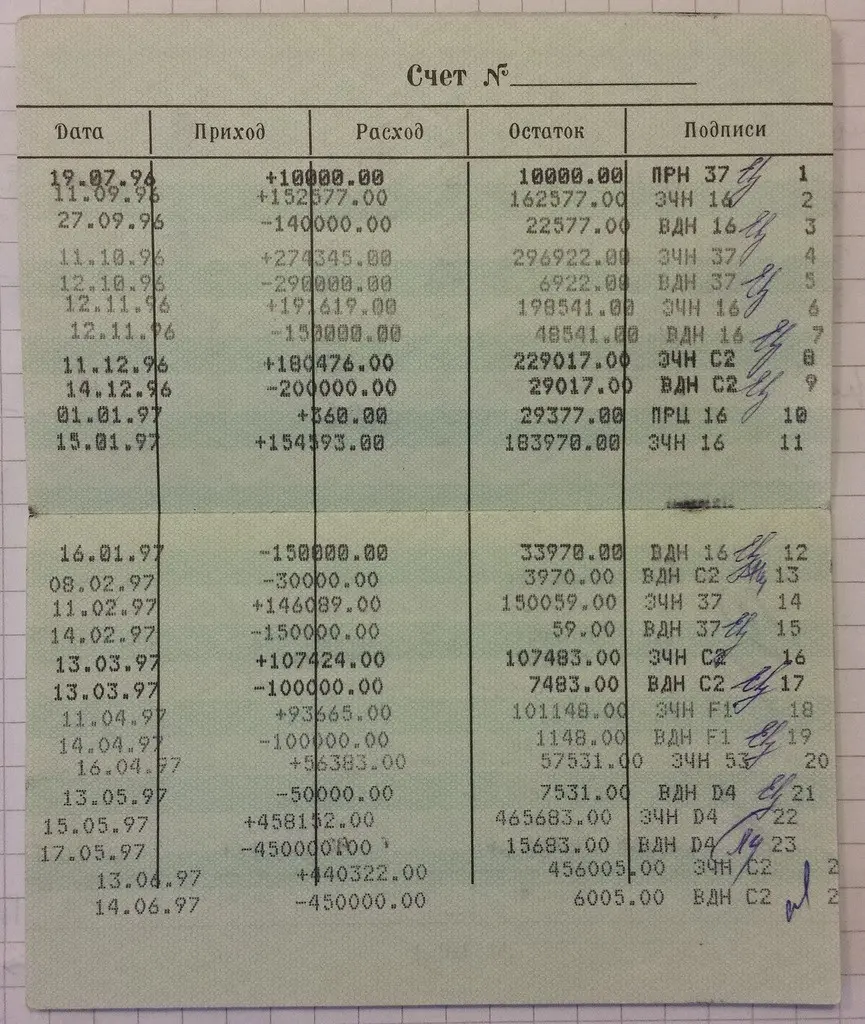 Счет №
Дата Приход Расход Остаток Подписи
19.07.96 +10000.00 10000.00 ПРН 37 1
11.09.96 +152577.00 162577.00 ЗЧН 16 2
27.09.96 -140000.00 22577.00 ВДН 16 3
11.10.96 +274345.00 296922.00 ЗЧН 37 4
12.10.96 -290000.00 6922.00 ВДН 37 5
12.11.96 +191619.00 198541.00 ЗЧН 16 6
12.11.96 -150000.00 48541.00 ВДН 16 7
11.12.96 +180476.00 229017.00 ЗЧН С2 8
14.12.96 -200000.00 29017.00 ВДН С2 9
01.01.97 +360.00 29377.00 ПРЦ 16 10
15.01.97 +154593.00 183970.00 ЗЧН 16 11
16.01.97 -150000.00 33970.00 ВДН 16 12
08.02.97 -30000.00 3970.00 ВДН С2 13
11.02.97 +146089.00 150059.00 ЗЧН 37 14
14.02.97 -150000.00 59.00 ВДН 37 15
13.03.97 +107424.00 107483.00 ЗЧН С2 16
13.03.97 -100000.00 7483.00 ВДН С2 17
11.04.97 +93665.00 101148.00 ЗЧН F1 18
14.04.97 -100000.00 1148.00 ВДН F1 19
16.04.97 +56383.00 57531.00 ЗЧН 53 20
13.05.97 -50000.00 7531.00 ВДН D4 21
15.05.97 +458152.00 465683.00 ЗЧН D4 22
17.05.97 -450000.00 15683.00 ВДН D4 23
13.06.97 +440322.00 456005.00 ЗЧН С2 2
14.06.97 -450000.00 6005.00 ВДН С2 2